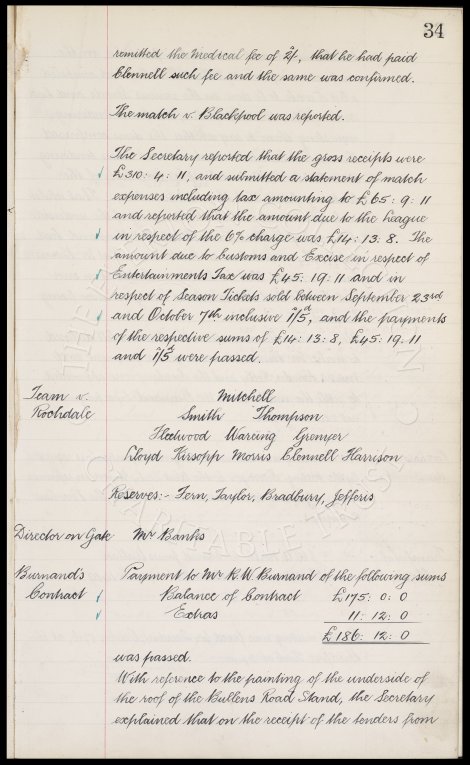 34
remitted the Medical fee of 2/-, that he had paid
Clennell such fee and the same was confirmed.
The match v. Blackpool was reported.
The Secretary reported that the gross receipts were
£310: 4: 11, and submitted a statement of match
expenses including tax amounting to £65: 9: 11
and reported that the amount due to the League
in respect of the 6% charge was £14: 13: 8. The
amount due to Customs and Excise in respect of
Entertainments Tax was £45: 19: 11 and in
respect of Season Tickets sold between September 23rd
and October 7th inclusive 1/5d, and the payments
of the respective sums of £14: 13: 8, £45: 19: 11
and 1/5d were passed.
Team v. Rochdale
Mitchell
Smith Thompson
Fleetwood Wareing Grenyer
Lloyd Kirsopp Morris Clennell Harrison
Reserves:- Fern, Taylor, Bradbury, Jefferis
Director on Gate Mr Banks
Burnand's Payment to Mr R. W. Burnand of the following sums
Contract Balance of Contract £175: 0: 0
Extras 11: 12: 0
£186: 12: 0
was passed.
With reference to the painting of the underside of
the roof of the Bullens Road Stand, the Secretary
explained that on the receipt of the tenders from